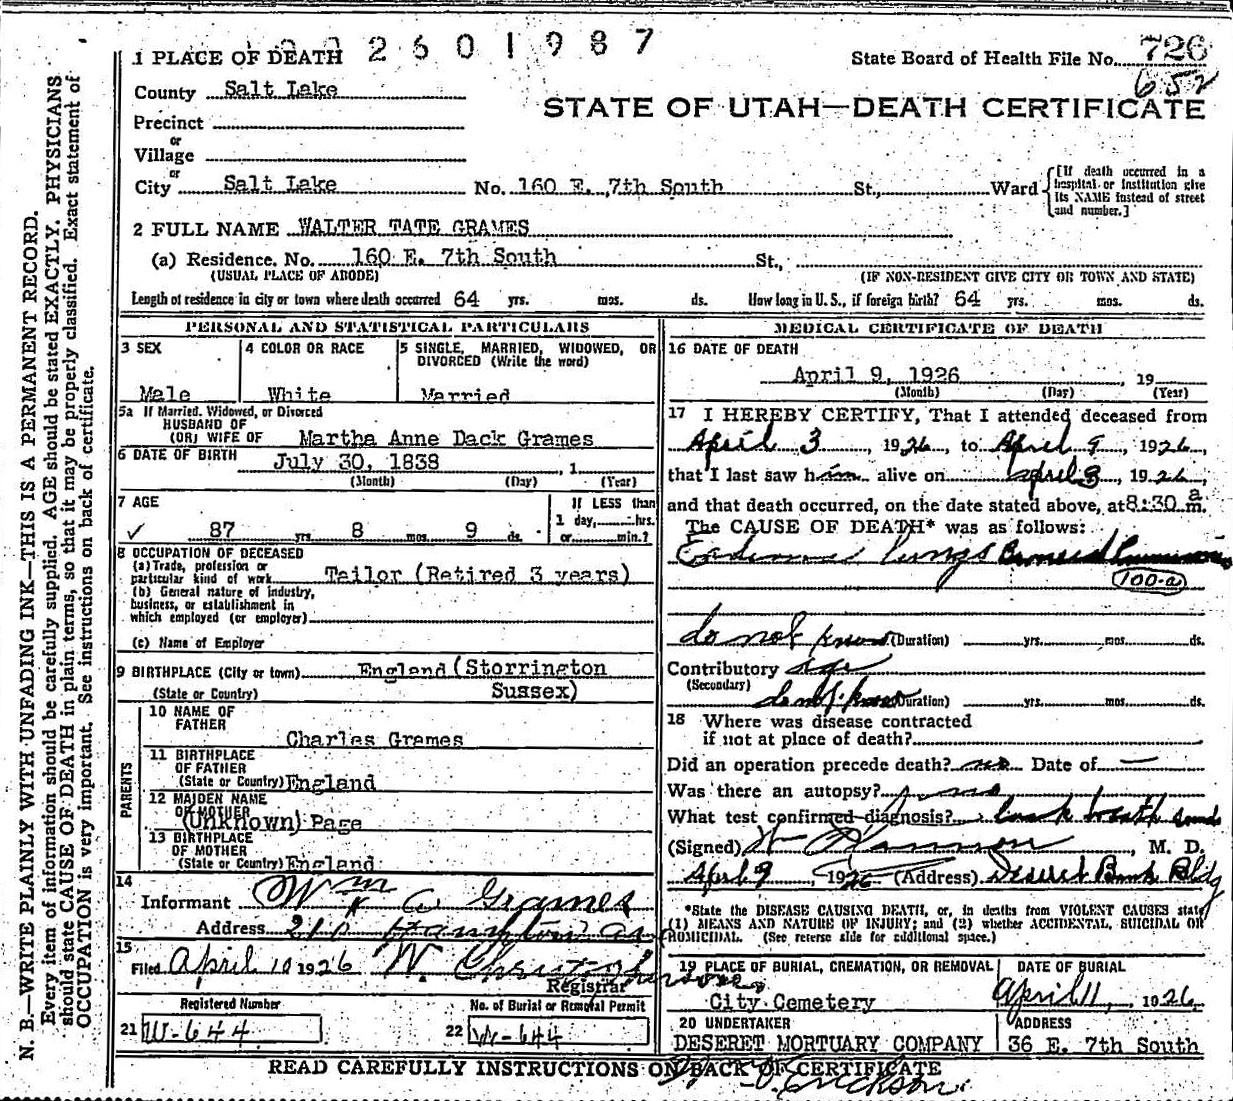 2 6 0 1 9 8 7
1 PLACE OF DEATH
State Board of Health File No. 726
652
County Salt Lake
STATE OF UTAH—DEATH CERTIFICATE
Precinct
or
Village
or
City Salt Lake No. 160 E. 7th South St., Ward
[If death occurred in a hospital or institution give its NAME instead of street and number.]
2 FULL NAME WALTER TATE GRAMES
(a) Residence. No. 160 E. 7th South St.,
(USUAL PLACE OF ABODE) (IF NON-RESIDENT GIVE CITY OR TOWN AND STATE)
Length of residence in city or town where death occurred 64 yrs. mos. ds. How long in U. S., if foreign birth? 64 yrs. mos. ds.
PERSONAL AND STATISTICAL PARTICULARS
3 SEX
Male
4 COLOR OR RACE
White
5 SINGLE, MARRIED, WIDOWED, OR
DIVORCED (Write the word)
Married
5a If Married, Widowed, or Divorced
HUSBAND OF
(OR) WIFE OF Martha Anne Dack Grames
6 DATE OF BIRTH July 30, 1838, 1
(Month) (Day) (Year)
7 AGE
✓ 87 yrs 8 mos. 9 ds.
If LESS than
1 day, hrs.
or min.?
8 OCCUPATION OF DECEASED
(a) Trade, profession or
particular kind of work Tailor (Retired 3 years)
(b) General nature of industry,
business, or establishment in
which employed (or employer)
(c) Name of Employer
9 BIRTHPLACE (City or town) England (Storrington
(State or Country) Sussex)
PARENTS
10 NAME OF
FATHER
Charles Grames
11 BIRTHPLACE
OF FATHER
(State or Country) England
12 MAIDEN NAME
OF MOTHER
(Unknown) Page
13 BIRTHPLACE
OF MOTHER
(State or Country) England
14
Informant Wm A Grames
Address Hampton
15
Filed April 10 1926 W.
Registrar
Registered Number
21 W-644
No. of Burial or Removal Permit
22 W-644
MEDICAL CERTIFICATE OF DEATH
16 DATE OF DEATH
April 9, 1926, 19
(Month) (Day) (Year)
17 I HEREBY CERTIFY, That I attended deceased from
April 3, 1926, to April 9, 1926,
that I last saw him alive on April 8, 1926,
and that death occurred, on the date stated above, at 8:30 a m.
The CAUSE OF DEATH* was as follows:
lungs
100-a
do not know (Duration) yrs. mos. ds.
Contributory age
(Secondary)
do not know (Duration) yrs. mos. ds.
18 Where was disease contracted
if not at place of death?
Did an operation precede death? no Date of —
Was there an autopsy? no
What test confirmed diagnosis? breath sounds
(Signed) W, M. D.
April 9, 1926 (Address) Deseret Bank Bldg
*State the DISEASE CAUSING DEATH, or, in deaths from VIOLENT CAUSES state
(1) MEANS AND NATURE OF INJURY; and (2) whether ACCIDENTAL, SUICIDAL OR
HOMICIDAL. (See reverse side for additional space.)
19 PLACE OF BURIAL, CREMATION, OR REMOVAL
City Cemetery
DATE OF BURIAL
April 11, 1926
20 UNDERTAKER
DESERET MORTUARY COMPANY
ADDRESS
36 E. 7th South
READ CAREFULLY INSTRUCTIONS ON BACK OF CERTIFICATE
Erickson
N. B.—WRITE PLAINLY WITH UNFADING INK—THIS IS A PERMANENT RECORD.
Every item of information should be carefully supplied. AGE should be stated EXACTLY. PHYSICIANS
should state CAUSE OF DEATH in plain terms, so that it may be properly classified. Exact statement of
OCCUPATION is very important. See instructions on back of certificate.